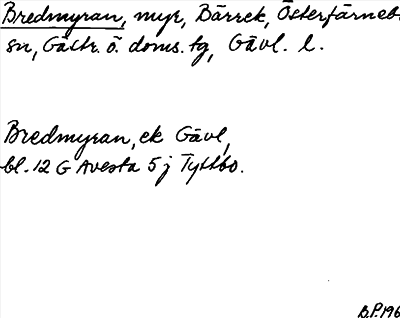 Bredmyran, myr, Bärrek, Österfärneb.
sn, Gästr. ö. doms. tg, Gävl. l.
Bredmyran, ek Gävl,
bl. 12 G Avesta 5 j Tyttbo.
B.P. 196